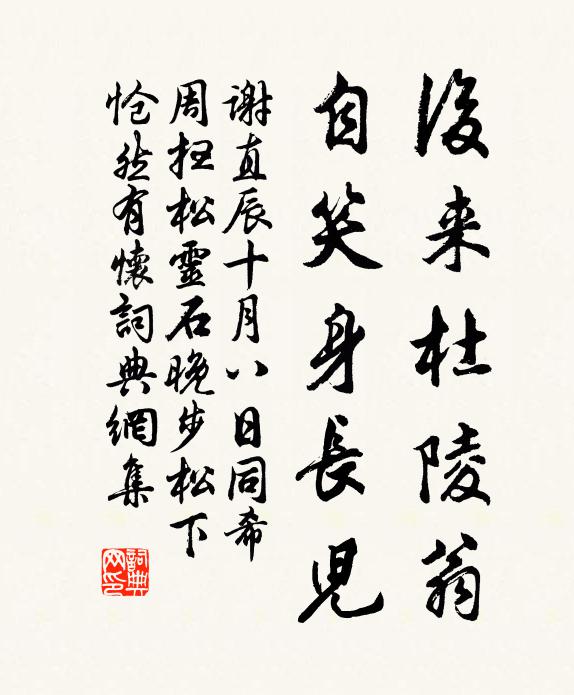 後来杜陵翁
自笑身長児
謝直辰十月八日同希
周扫松靈石晚步松下
怆然有懷詞典網集
詞典网印